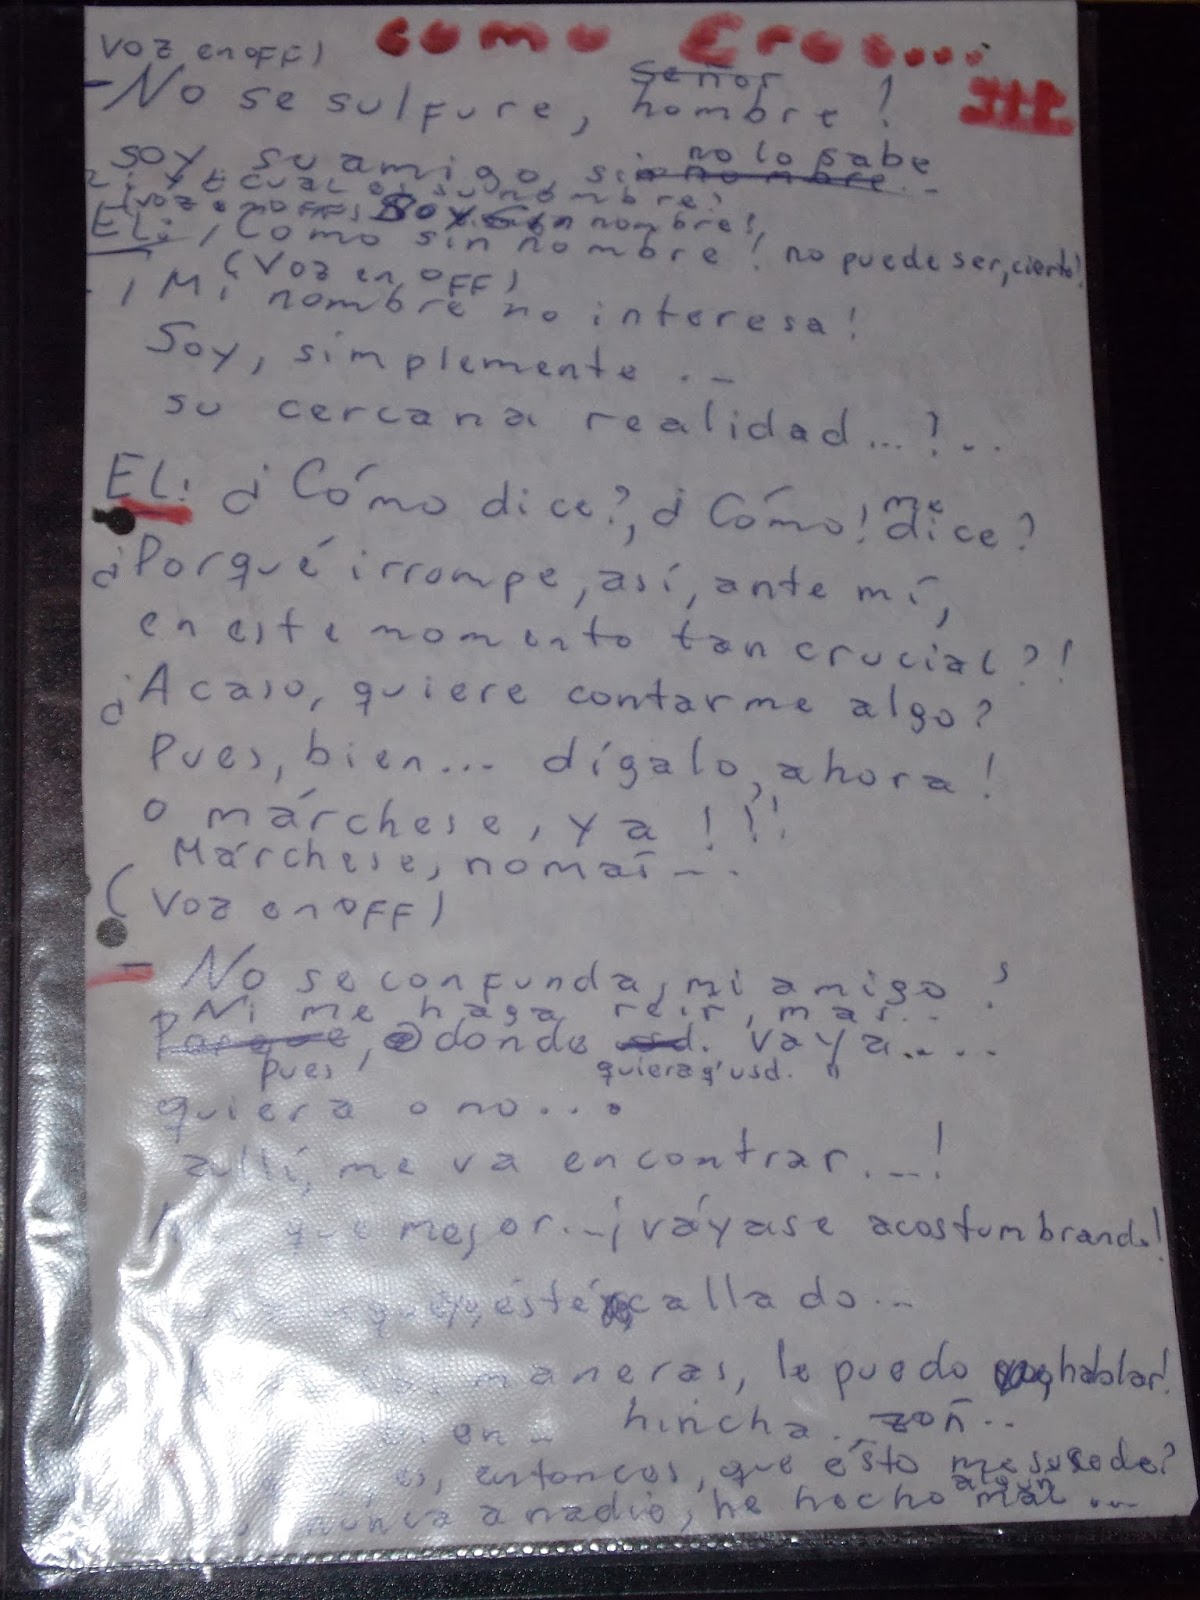 como Eros...
Voz en off)
señor
- No se sulfure, hombre!
no lo sabe
soy, su amigo, sin nombre...
¿Y cuál es su nombre?
(voz en off) Soy Sin nombres,
EL: ¡Cómo sin nombre! no puede ser, cierto!
(Voz en off)
- ¡Mi nombre no interesa!
Soy, simplemente...
su cercana realidad...?...
EL: ¿Cómo dice?, ¿Cómo! me dice?
¿Porqué irrompe, así, ante mí,
en este momento tan crucial?!
¿Acaso, quiere contarme algo?
Pues, bien... dígalo, ahora!
o márchese, ya!!!
Márchese, nomás...
(Voz en off)
- No se confunda, mi amigo!
Ni me haga reír, más..
Porque, donde usd. vaya....
pues quiera q' usd. "
quiera o no...
allí, me va encontrar...!
que mejor...¡váyase acostumbrando!
esté callado...
maneras, le puedo hablar!
en... hincha.
entonces, que ésto me sucede?
algún
nunca a nadie, he hecho mal...